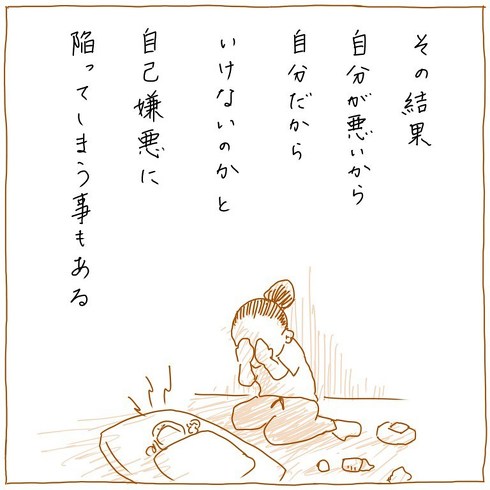 その結果
自分が悪いから
自分だから
いけないのかと
自己嫌悪に
陥ってしまう事もある